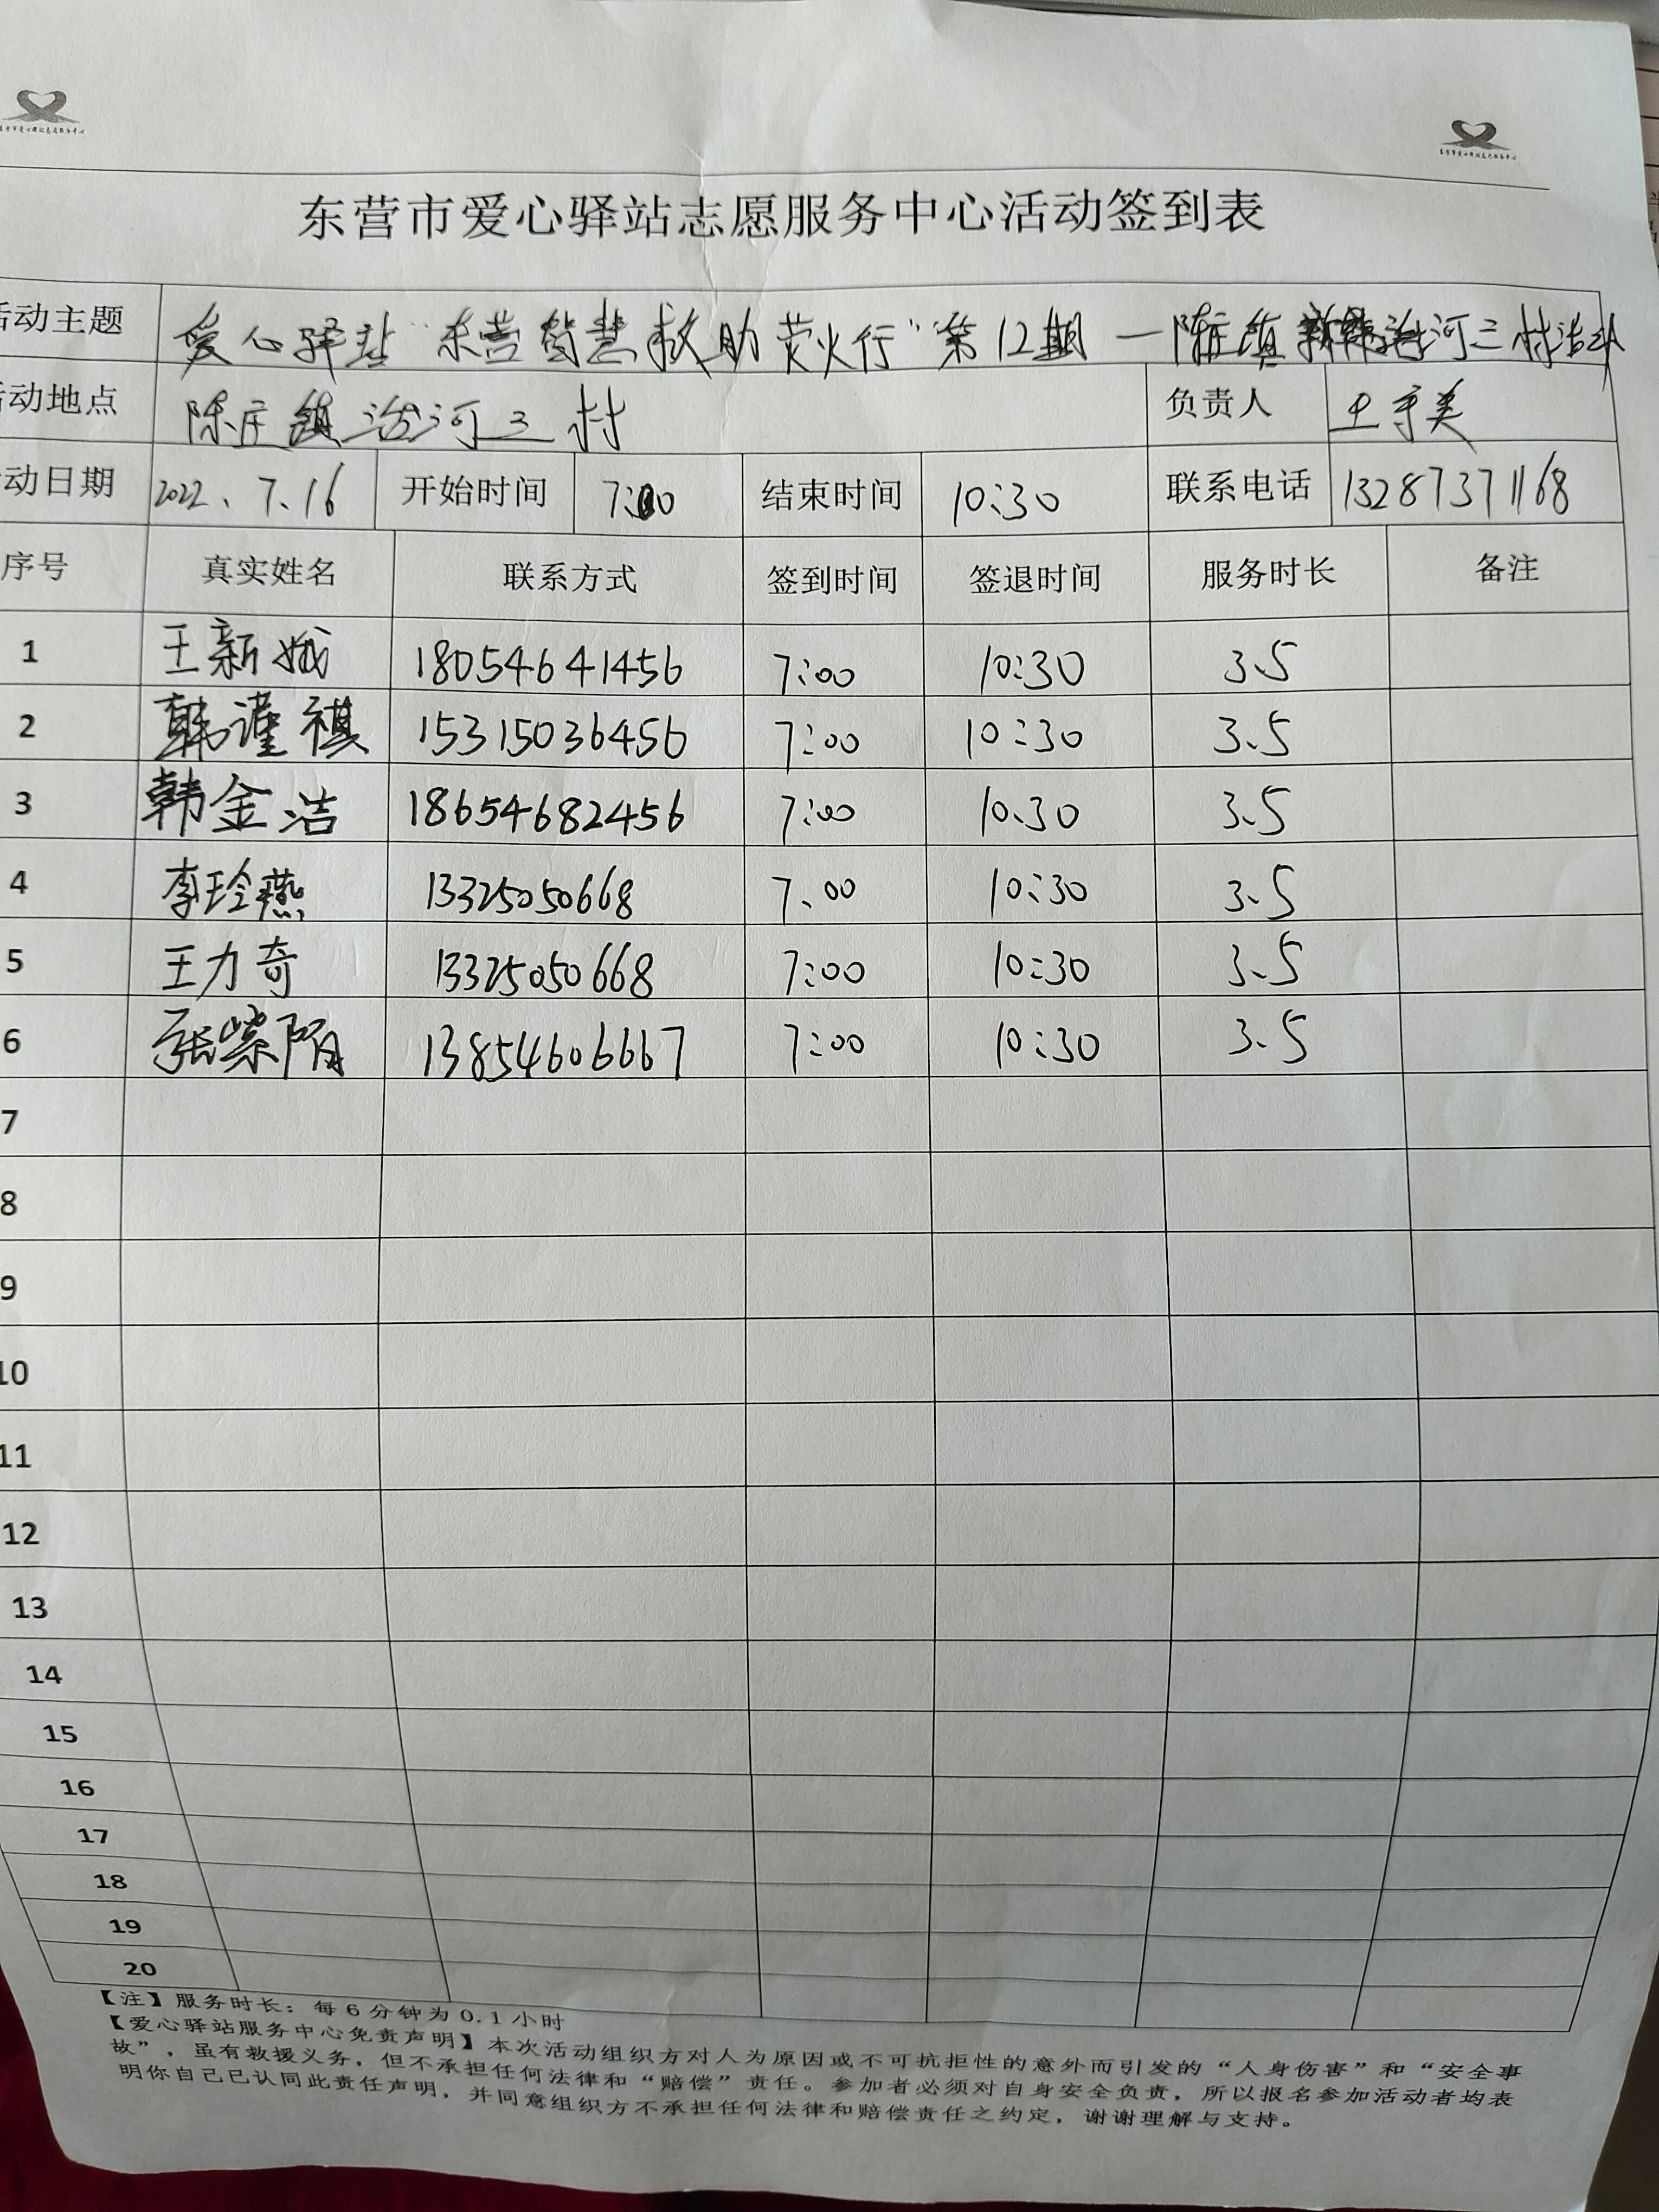 东营市爱心驿站志愿服务中心
东营市爱心驿站志愿服务中心
东营市爱心驿站志愿服务中心活动签到表
活动主题 爱心驿站"东营智慧救助 荧火行"第12期 — 陈庄镇 河三村活动
活动地点 陈庄镇 河三村 负责人 王 美
活动日期 2022、7、16 开始时间 7:00 结束时间 10:30 联系电话 13287371168
序号 真实姓名 联系方式 签到时间 签退时间 服务时长 备注
1 王新娥 18054641456 7:00 10:30 3.5
2 韩谨祺 15315036456 7:00 10:30 3、5
3 韩金洁 18654682456 7:00 10.30 3、5
4 李玲燕 13325050668 7、00 10:30 3、5
5 王力奇 13325050668 7:00 10:30 3、5
6 张紫陌 13854606667 7:00 10:30 3、5
7
8
9
10
11
12
13
14
15
16
17
18
19
20
【注】服务时长：每6分钟为0.1小时
【爱心驿站服务中心免责声明】本次活动组织方对人为原因或不可抗拒性的意外而引发的“人身伤害”和“安全事
故”，虽有救援义务，但不承担任何法律和“赔偿”责任。参加者必须对自身安全负责，所以报名参加活动者均表
明你自己已认同此责任声明，并同意组织方不承担任何法律和赔偿责任之约定，谢谢理解与支持。